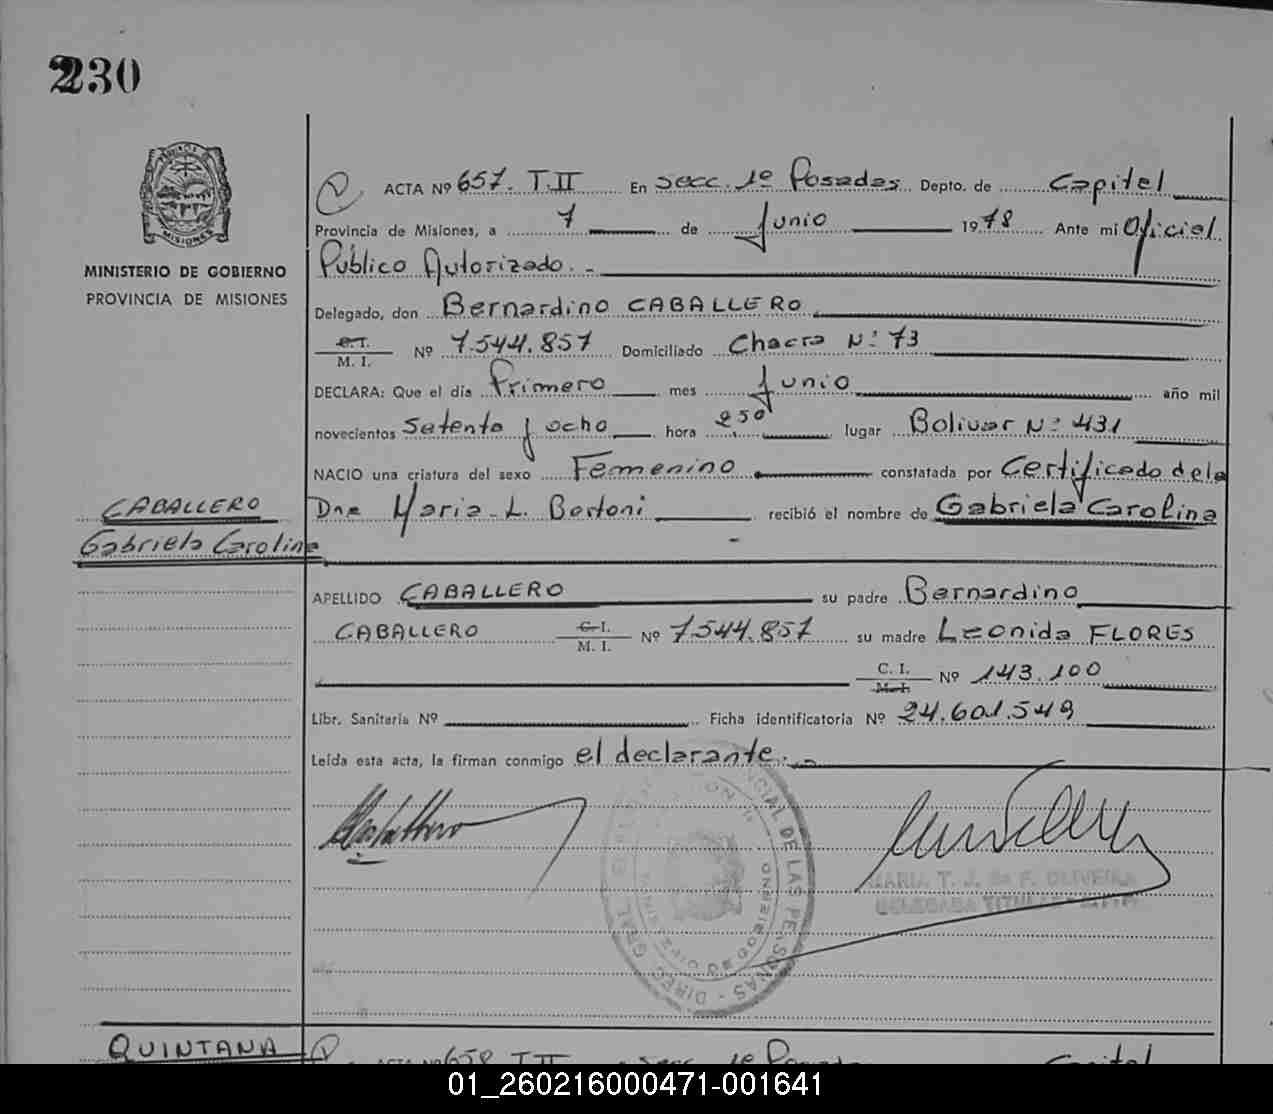 230
MINISTERIO DE GOBIERNO
PROVINCIA DE MISIONES
ACTA Nº 657. T.II En Secc. 1º Posadas Depto. de Capital
Provincia de Misiones, a 7 de Junio 1978 Ante mi Oficial
Público Autorizado. -
Delegado, don Bernardino CABALLERO
C.I.
M. I. Nº 7.544.857 Domiciliado Chacra Nº 73
DECLARA: Que el día Primero mes Junio año mil
novecientos Setenta y ocho hora 2,50 lugar Bolivar Nº 431
NACIO una criatura del sexo Femenino constatada por Certificado de la
Dra Maria L. Bortoni recibió el nombre de Gabriela Carolina
CABALLERO
Gabriela Carolina
APELLIDO CABALLERO su padre Bernardino
CABALLERO C.I.
M. I. Nº 7.544.857 su madre Leonida FLORES
C. I.
M. I. Nº 143.100
Libr. Sanitaria Nº Ficha identificatoria Nº 24.601.549
Leída esta acta, la firman conmigo el declarante. -
MARIA T. J. de F. OLIVEIRA
DELEGADA TITULAR
DIREC. GRAL. PROVINCIAL DE LAS PERSONAS
QUINTANA
ACTA Nº 658 T.II Secc. 1º Posadas Capital
01_260216000471-001641